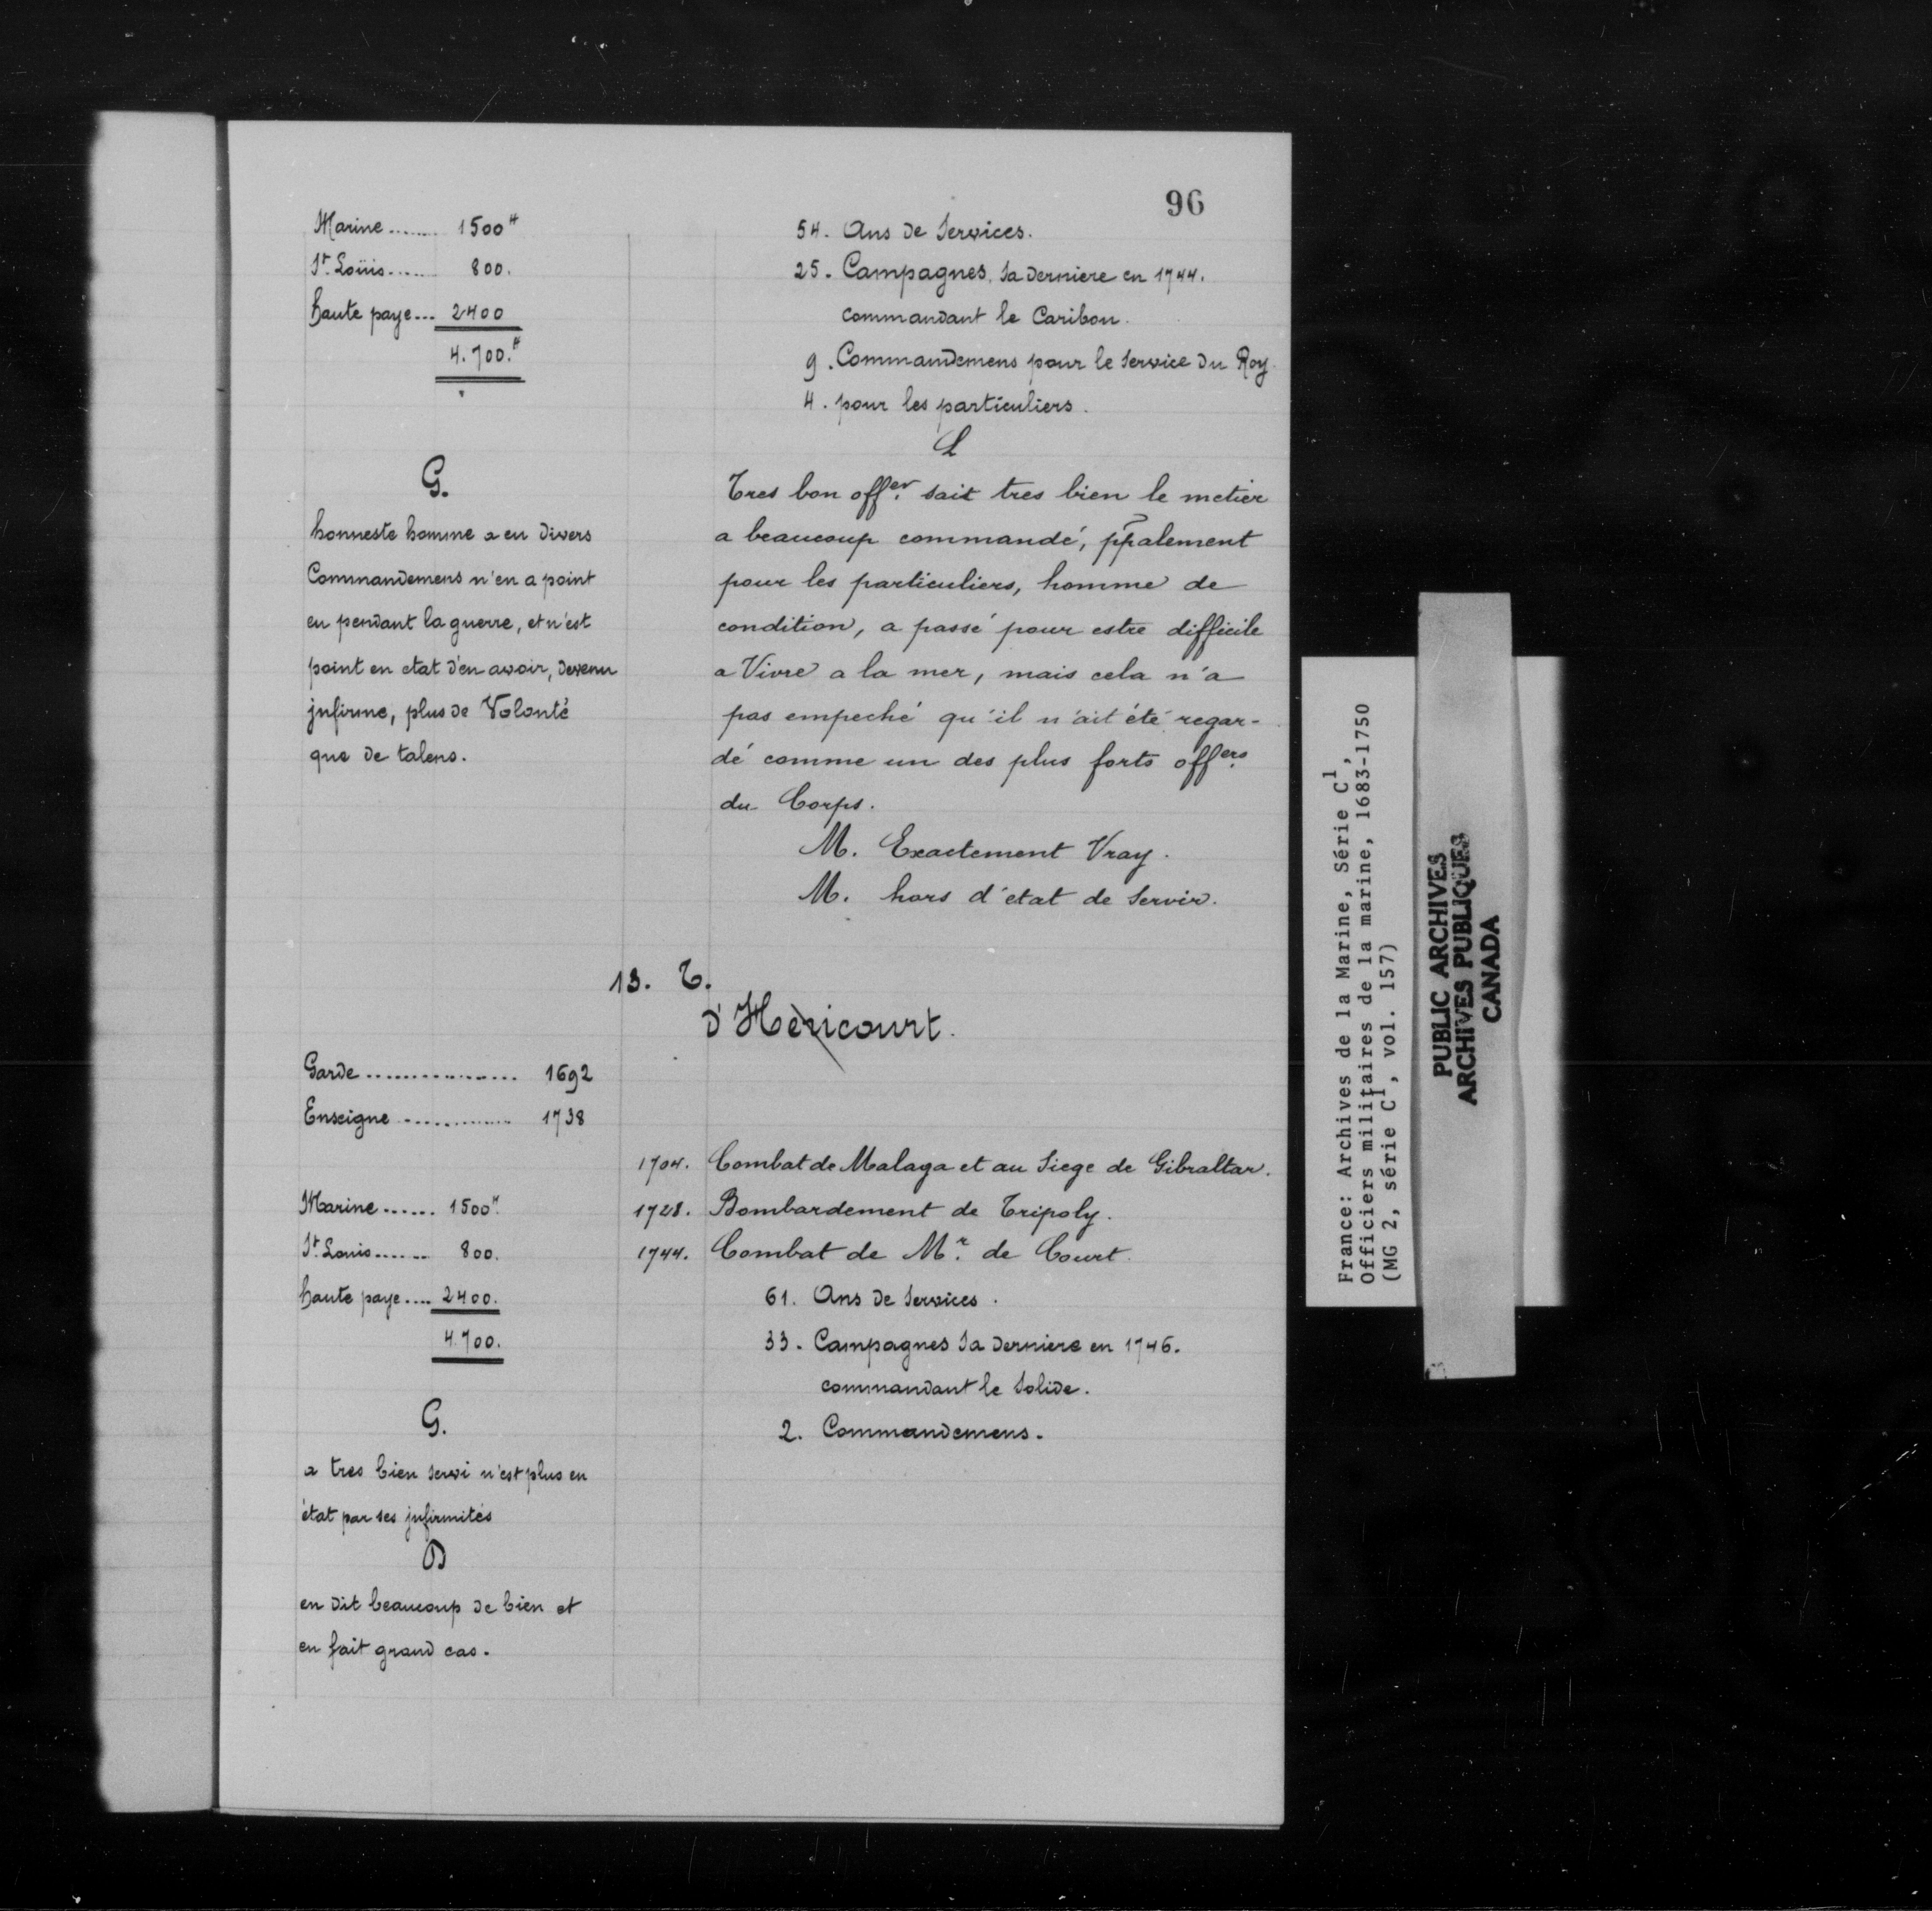 96
Marine ....... 1500#
St. Loüis ...... 800.
haute paye ... 2400
4.700.#
54. Ans de Services.
25. Campagnes, Sa derniere en 1744.
commandant le Caribou.
9. Commandemens pour le Service du Roy.
4. pour les particuliers.
G.
honneste homme a eu divers
Commandemens n'en a point
eu pendant la guerre, et n'est
point en etat d'en avoir, devenu
jnfirme, plus de Volonté
que de talens.
L
Tres bon offer. sait tres bien le metier
a beaucoup commandé, ppalement
pour les particuliers, homme de
condition, a passé pour estre difficile
a Vivre a la mer, mais cela n'a
pas empeché qu'il n'ait été regar-
dé comme un des plus forts offers.
du Corps.
M. Exactement Vray.
M. hors d'etat de Servir.
13. T.
d'Hericourt.
Garde ................. 1692
Enseigne ............. 1738
Marine ...... 1500#
St. Louis ....... 800.
haute paye .... 2400.
4.700.
1704. Combat de Malaga et au Siege de Gibraltar.
1728. Bombardement de Tripoly.
1744. Combat de Mr. de Court.
61. Ans de Services.
33. Campagnes Sa derniere en 1746.
commandant le Solide.
2. Commandemens.
G.
a tres bien servi n'est plus en
état par ses jnfirmités
D
en dit beaucoup de bien et
en fait grand cas.
France: Archives de la Marine, Série C1,
Officiers militaires de la marine, 1683-1750
(MG 2, série C1, vol. 157)
PUBLIC ARCHIVES
ARCHIVES PUBLIQUES
CANADA